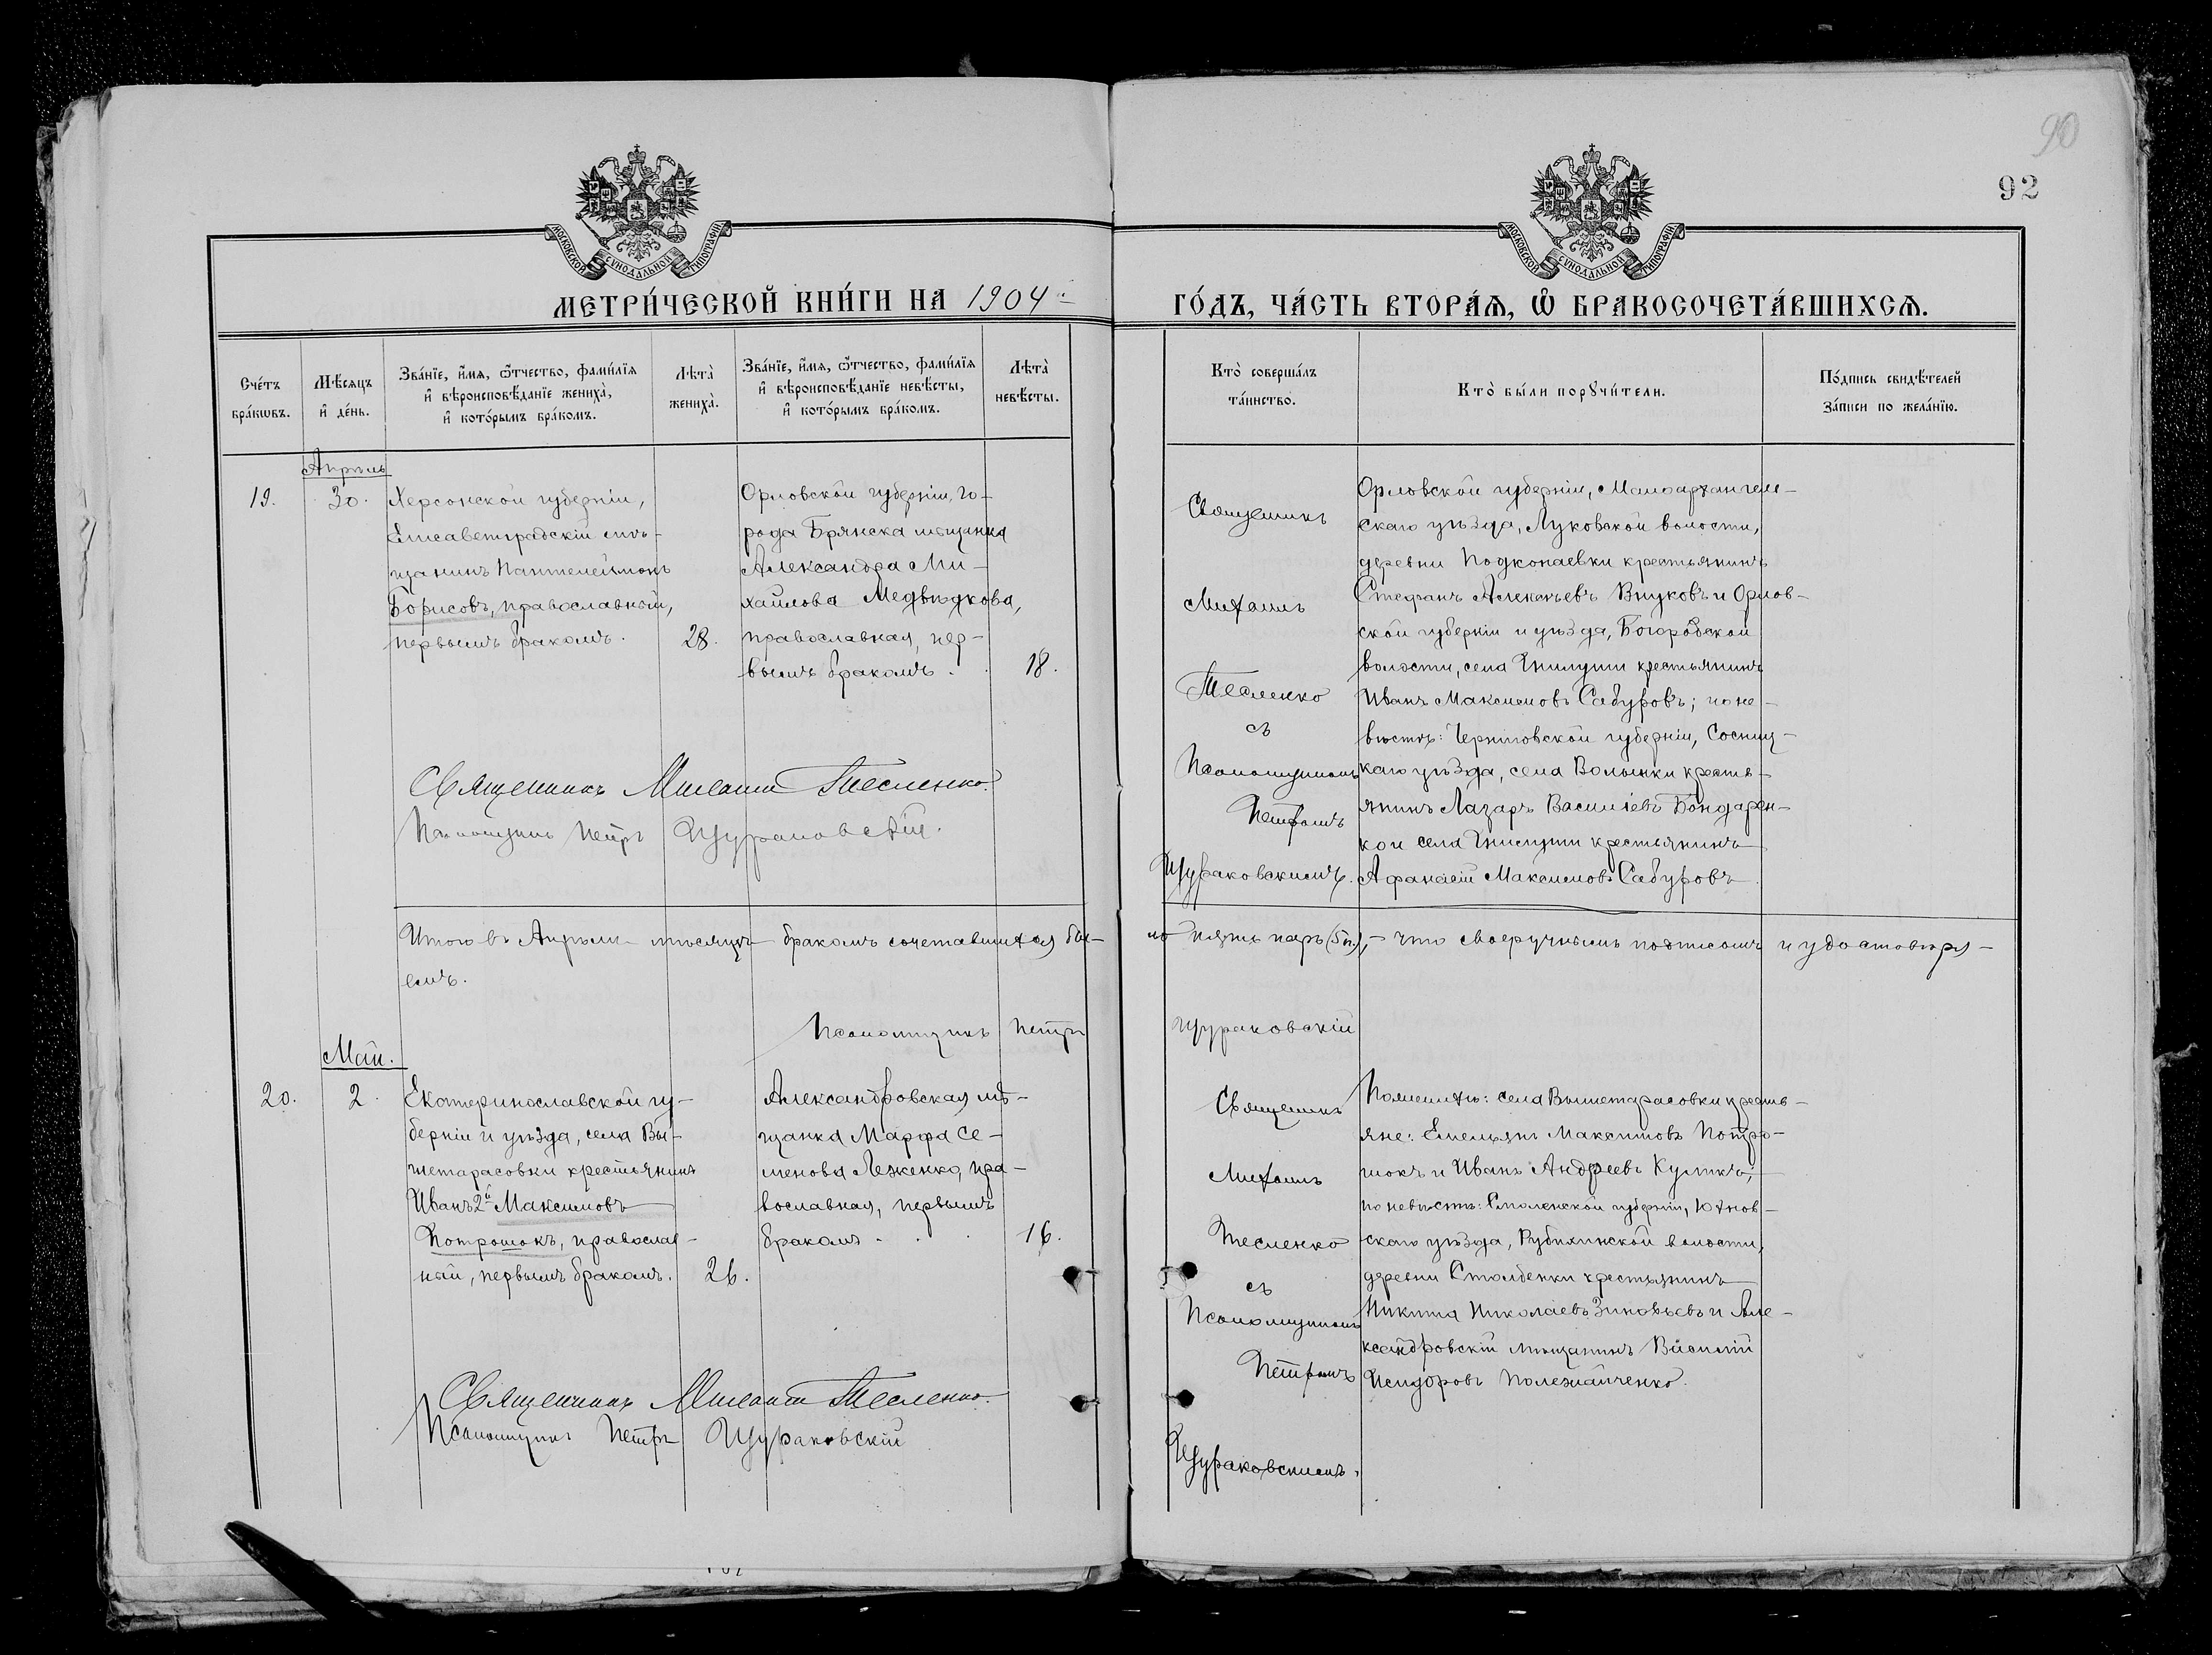 90
92
МОСКОВСКОЙ СѴНОДАЛЬНОЙ ТИПОГРАФІИ
МОСКОВСКОЙ СѴНОДАЛЬНОЙ ТИПОГРАФІИ
МЕТРИ́ЧЕСКОЙ КНИ́ГИ НА 1904 й
ГО́ДЪ, ЧА́СТЬ ВТОРА́Ѧ, Ѿ БРАКОСОЧЕТА́ВШИХСѦ.
Сче́тъ
бра́кѡвъ.
Мѣ́сяцъ
и҆ де́нь.
Зва́нїе, и҆́мѧ, ѻ҆́тчество, фами́лїѧ
и҆ вѣроисповѣ́данїе жениха̀,
и҆ кото́рымъ бра́комъ.
Лѣта̀
жениха̀.
Зва́нїе, и҆́мѧ, ѻ҆́тчество, фами́лїѧ
и҆ вѣроисповѣ́данїе невѣ́сты,
и҆ кото́рымъ бра́комъ.
Лѣта̀
невѣ́сты.
Кто̀ соверша́лъ
та́инство.
Кто̀ бы́ли порꙋчи́тели.
По́дпись свидѣ́телей
за́писи по жела́нїю.
Апрѣль
19.
30.
Херсонской губерніи,
Елисаветградскій мѣ-
щанинъ Пантелеймонъ
Борисовъ, православный,
первымъ бракомъ.
28.
Орловской губерніи, го-
рода Брянска мѣщанка
Александра Ми-
хайлова Медвѣдкова,
православная, пер-
вымъ бракомъ.
18.
Священникъ
Михаилъ
Тесленко
съ
Псаломщикомъ
Петромъ
Щураковскимъ.
Орловской губерніи, Малоархангель-
скаго уѣзда, Луковской волости,
деревни Подкопаевки крестьянинъ
Стефанъ Алексѣевъ Внуковъ и Орлов-
ской губерніи и уѣзда, Богородской
волости, села Гнилуши крестьянинъ
Иванъ Максимовъ Сабуровъ; по не-
вѣстѣ: Черниговской губерніи, Сосниц-
каго уѣзда, села Волынки кресть-
янинъ Лазарь Василіевъ Бондарен-
ко и села Гнилуши крестьянинъ
Афанасій Максимовъ Сабуровъ
Священникъ Михаилъ Тесленко.
Псаломщикъ Петръ Щураковскій.
Итого въ Апрѣлѣ мѣсяцѣ бракомъ сочетавшихся бы-
ло пять паръ (5 п.), – что своеручнымъ подписомъ и удостовѣря-
емъ.
Псаломщикъ Петръ
Щураковскій
Май.
20.
2.
Екатеринославской гу-
берніи и уѣзда, села Вы-
шетарасовки крестьянинъ
Иванъ 2й Максимовъ
Потрошокъ, православ-
ный, первымъ бракомъ.
26.
Александровская мѣ-
щанка Марфа Се-
менова Леженко, пра-
вославная, первымъ
бракомъ.
16.
Священникъ
Михаилъ
Тесленко
съ
Псаломщикомъ
Петромъ
Щураковскимъ.
По женихѣ: села Вышетарасовки кресть-
яне: Емельянъ Максимовъ Потро-
шокъ и Иванъ Андреевъ Куликъ;
по невѣстѣ: Смоленской губерніи, Юхнов-
скаго уѣзда, Рубихинской волости,
деревни Столбенки крестьянинъ
Никита Николаевъ Зиновьевъ и Але-
ксандровскій мѣщанинъ Василій
Исидоровъ Полежайченко.
Священникъ Михаилъ Тесленко.
Псаломщикъ Петръ Щураковскій